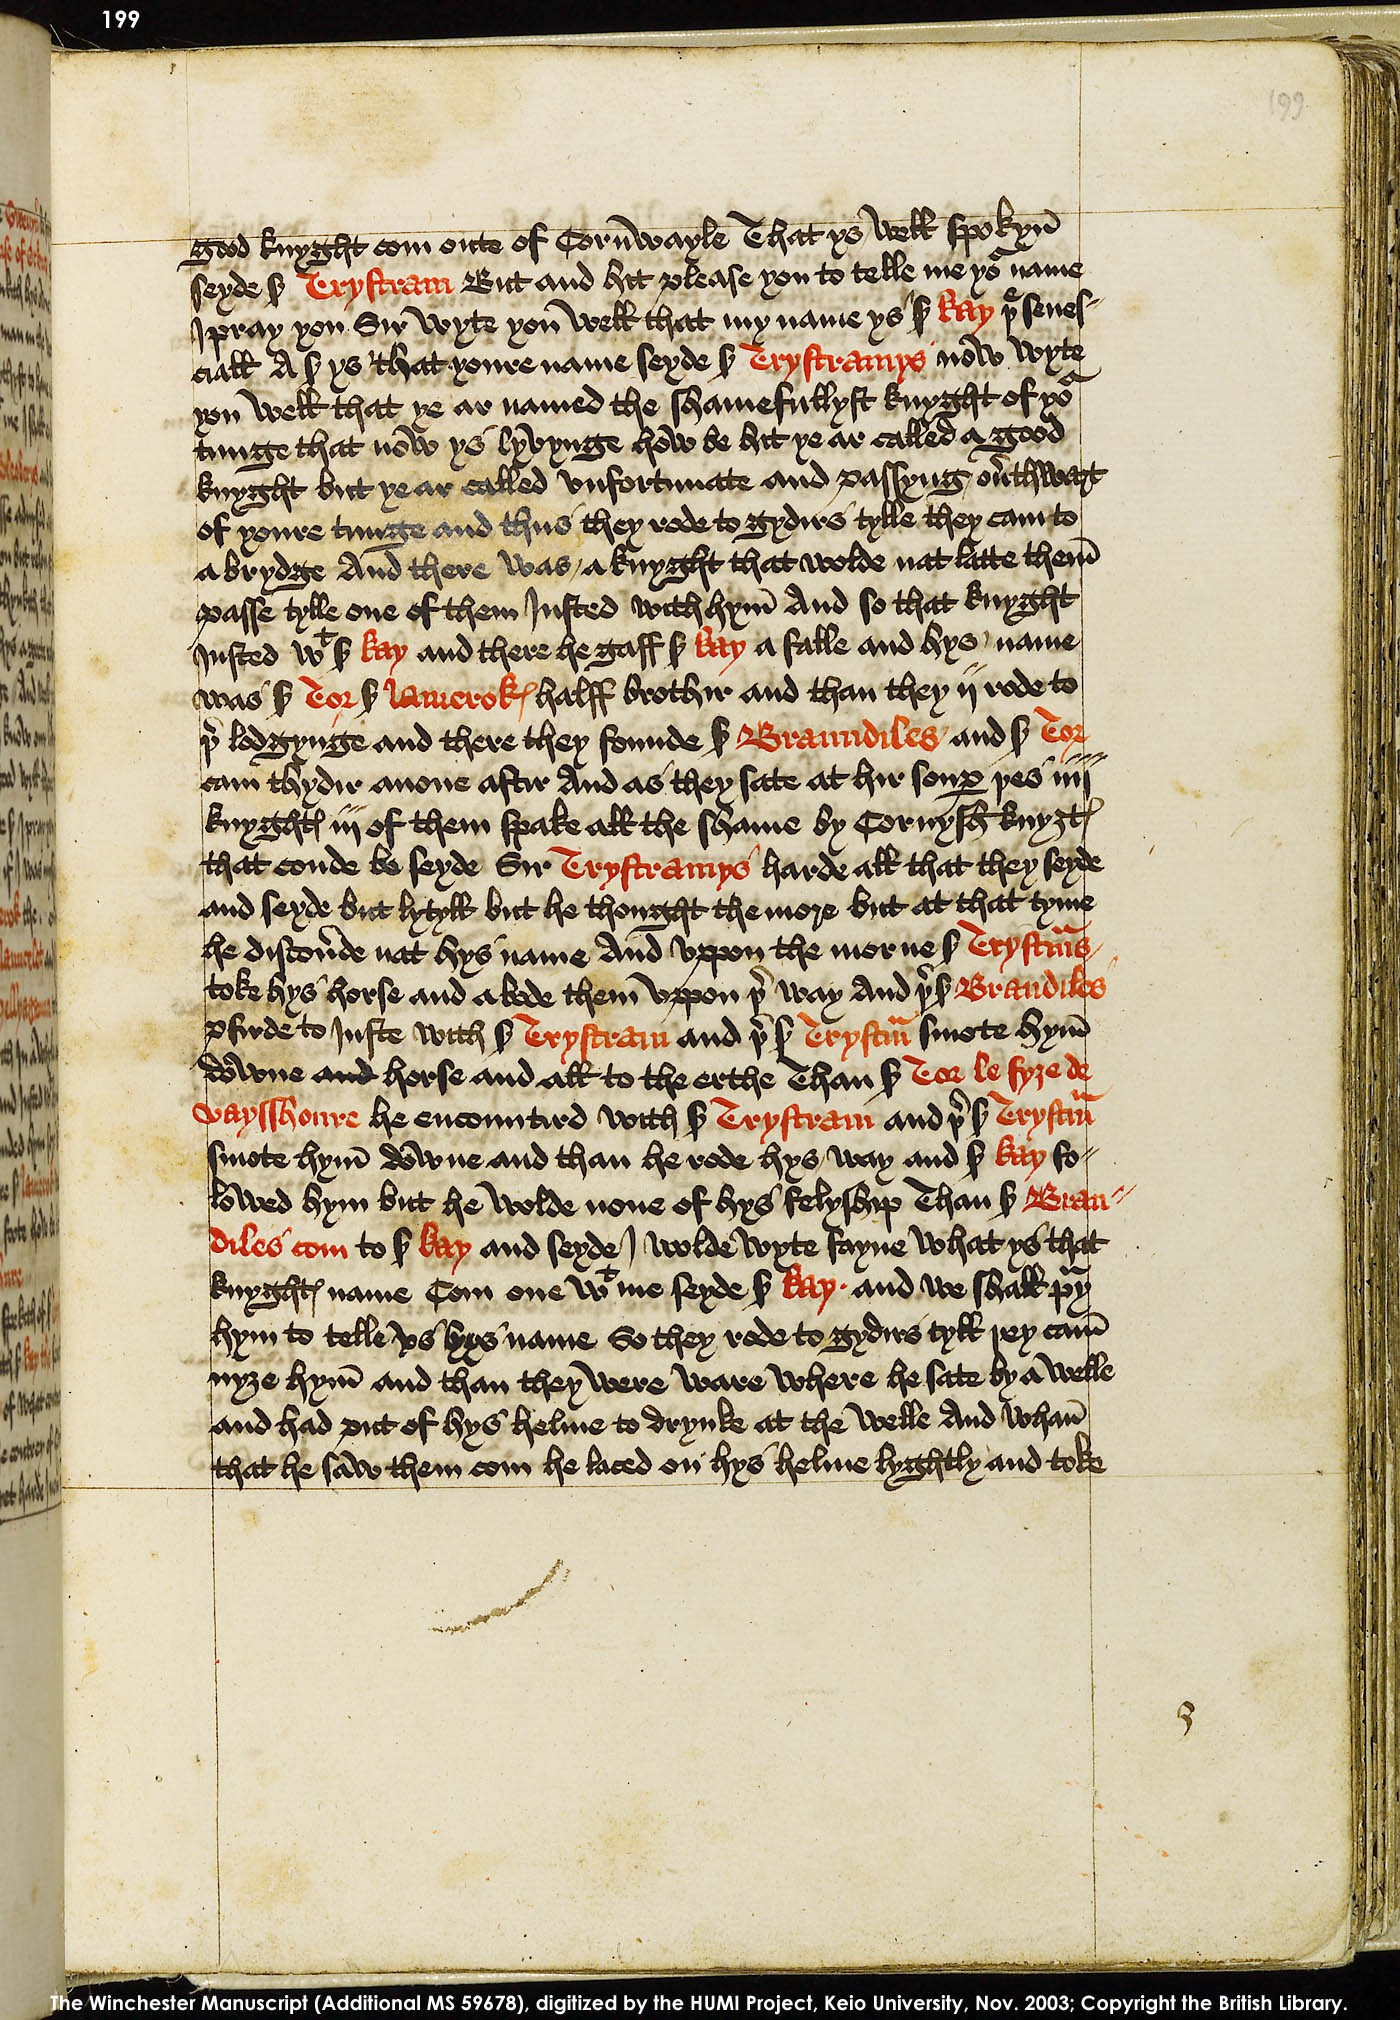 199
199
good knyght com oute of Cornwayle That ys well spokyn
seyde sʳ Trystram But and hit please you to telle me yoʳ name
I pray you Sir wyte you well that my name ys sʳ kay þᵉ senes-
ciall A sʳ ys that youre name seyde sʳ Trystramys now wyte
you well that ye ar named the shamefullyst knyght of yoʳ
tunge that now ys lyvynge how be hit ye ar called a good
knyght but ye ar called vnfortunate and passyng ouᵉthwart
of youre tunge and thus they rode to gydirs tylle they cam to
a brydge And there was a knyght that wolde nat latte them̄
passe tylle one of them Iusted with hym̄ And so that knyght
Iusted wᵗ sʳ kay and there he gaff sʳ kay a falle and hys name
was sʳ Tor sʳ lamerokꝭ halff brothir and than they ij rode to
þʳ lodgynge and there they founde sʳ Braundiles and sʳ Tor
cam thydir anone aftir And as they sate at hir souꝑ þes iiij
knyghtꝭ iij of them spake all the shame by Cornysh knyȝtꝭ
that coude be seyde Sir Trystramys harde all that they seyde
and seyde but lytyll but he thought the more but at that tyme
he discouᵉde nat hys name And vppon the morne sʳ Trystm̄s
toke hys horse and abode them̄ vppon þʳ way And þʳ sʳ Brandiles
ꝓfirde to Iuste with sʳ Trystram and þʳ sʳ Trystm̄ smote hym̄
downe and horse and all to the erthe Than sʳ Tor le fyze de
vaysshoure he encountird with sʳ Trystram and þʳ sʳ Trystm̄
smote hym̄ downe and than he rode hys way and sʳ kay fo-
lowed hym but he wolde none of hys felyship Than sʳ Bran-
diles com to sʳ kay and seyde I wolde wyte fayne what ys that
knyghtꝭ name Com one wᵗ me seyde sʳ kay · and we shall pᵃy
hym to telle vs hys name So they rode to gydirs tyll þey cam̄
nyȝe hym̄ and than they were ware where he sate by a welle
and had put of hys helme to drynke at the welle And whan̄
that he saw them com he laced on hys helme lyghtly and toke
The Winchester Manuscript (Additional MS 59678), digitized by the HUMI Project, Keio University, Nov. 2003; Copyright the British Library.